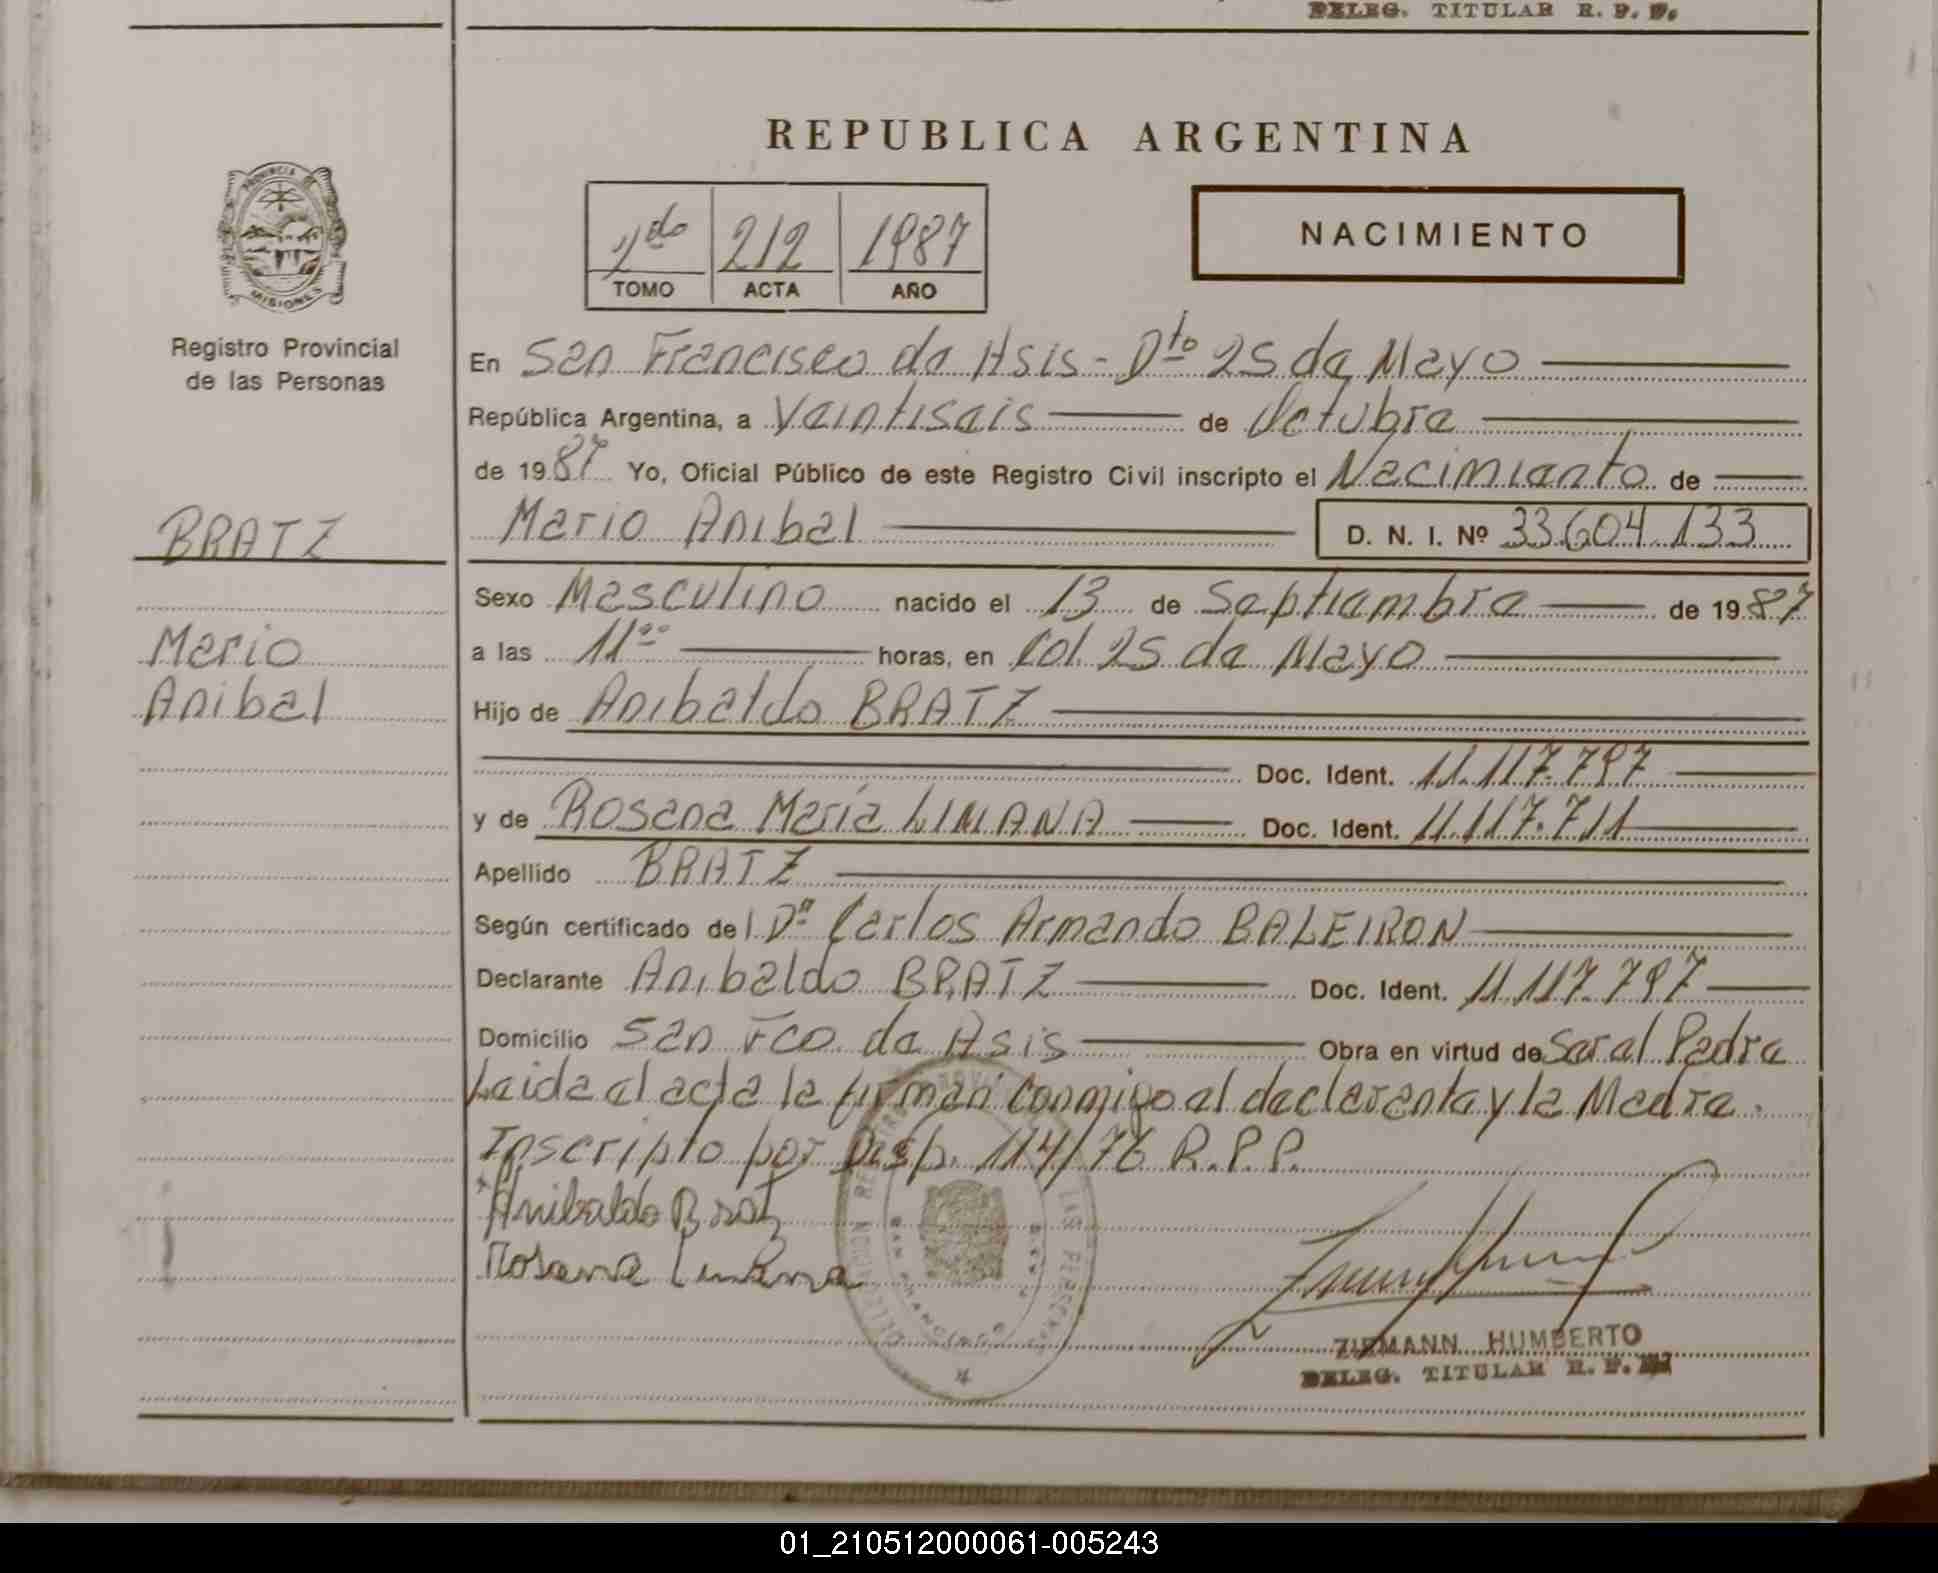 DELEG. TITULAR R. P. P.
REPUBLICA ARGENTINA
PROVINCIA DE
MISIONES
Registro Provincial
de las Personas
2do 212 1987
TOMO ACTA AÑO
NACIMIENTO
En San Francisco de Asis - Dto 25 de Mayo
República Argentina, a Veintiseis de Octubre
de 1987 Yo, Oficial Público de este Registro Civil inscripto el Nacimiento de
BRATZ
Mario Anibal D. N. I. Nº 33.604.133
Sexo Masculino nacido el 13 de Septiembre de 1987
Mario
a las 11 00 horas, en Col. 25 de Mayo
Anibal
Hijo de Anibaldo BRATZ
Doc. Ident. 11.117.797
y de Rosana María LIMANA Doc. Ident. 11.117.711
Apellido BRATZ
Según certificado del Dr Carlos Armando BALEIRON
Declarante Anibaldo BRATZ Doc. Ident. 11.117.797
Domicilio San Fco. de Asis Obra en virtud de Ser el Padre
Leida el acta la firman conmigo el declarante y la Madre.
Inscripto por Disp. 114/76 R.P.P.
Anibaldo Bratz
Rosana Limana
ZIEMANN HUMBERTO
DELEG. TITULAR R. P.
01_210512000061-005243